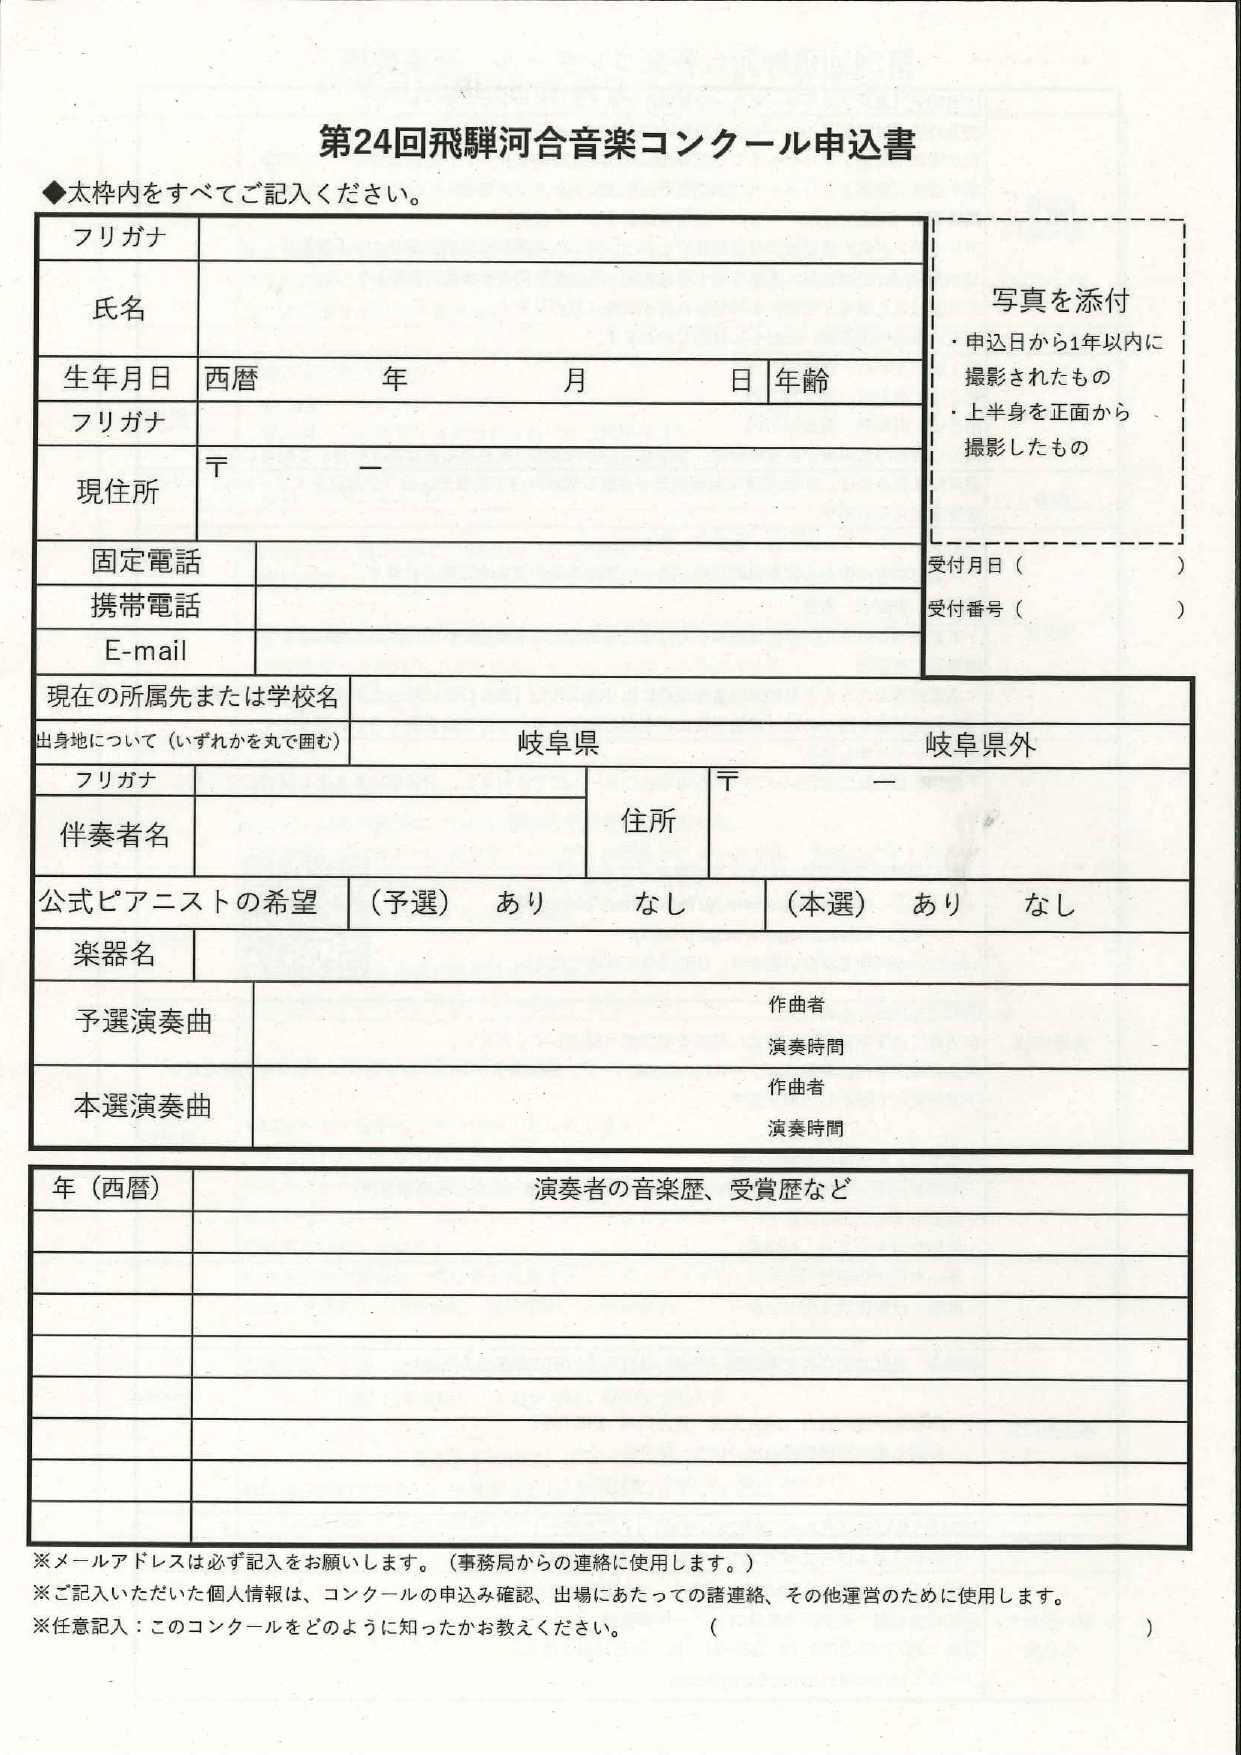 第24回飛騨河合音楽コンクール申込書
◆太枠内をすべてご記入ください。
フリガナ
氏名
生年月日 西暦 年 月 日 年齢
フリガナ
現住所 〒 ー
固定電話
携帯電話
E-mail
写真を添付
・申込日から1年以内に
撮影されたもの
・上半身を正面から
撮影したもの
受付月日（ ）
受付番号（ ）
現在の所属先または学校名
出身地について（いずれかを丸で囲む） 岐阜県 岐阜県外
フリガナ
伴奏者名 住所 〒 ー
公式ピアニストの希望 （予選） あり なし （本選） あり なし
楽器名
予選演奏曲 作曲者
演奏時間
本選演奏曲 作曲者
演奏時間
年（西暦） 演奏者の音楽歴、受賞歴など
※メールアドレスは必ず記入をお願いします。（事務局からの連絡に使用します。）
※ご記入いただいた個人情報は、コンクールの申込み確認、出場にあたっての諸連絡、その他運営のために使用します。
※任意記入：このコンクールをどのように知ったかお教えください。 （ ）